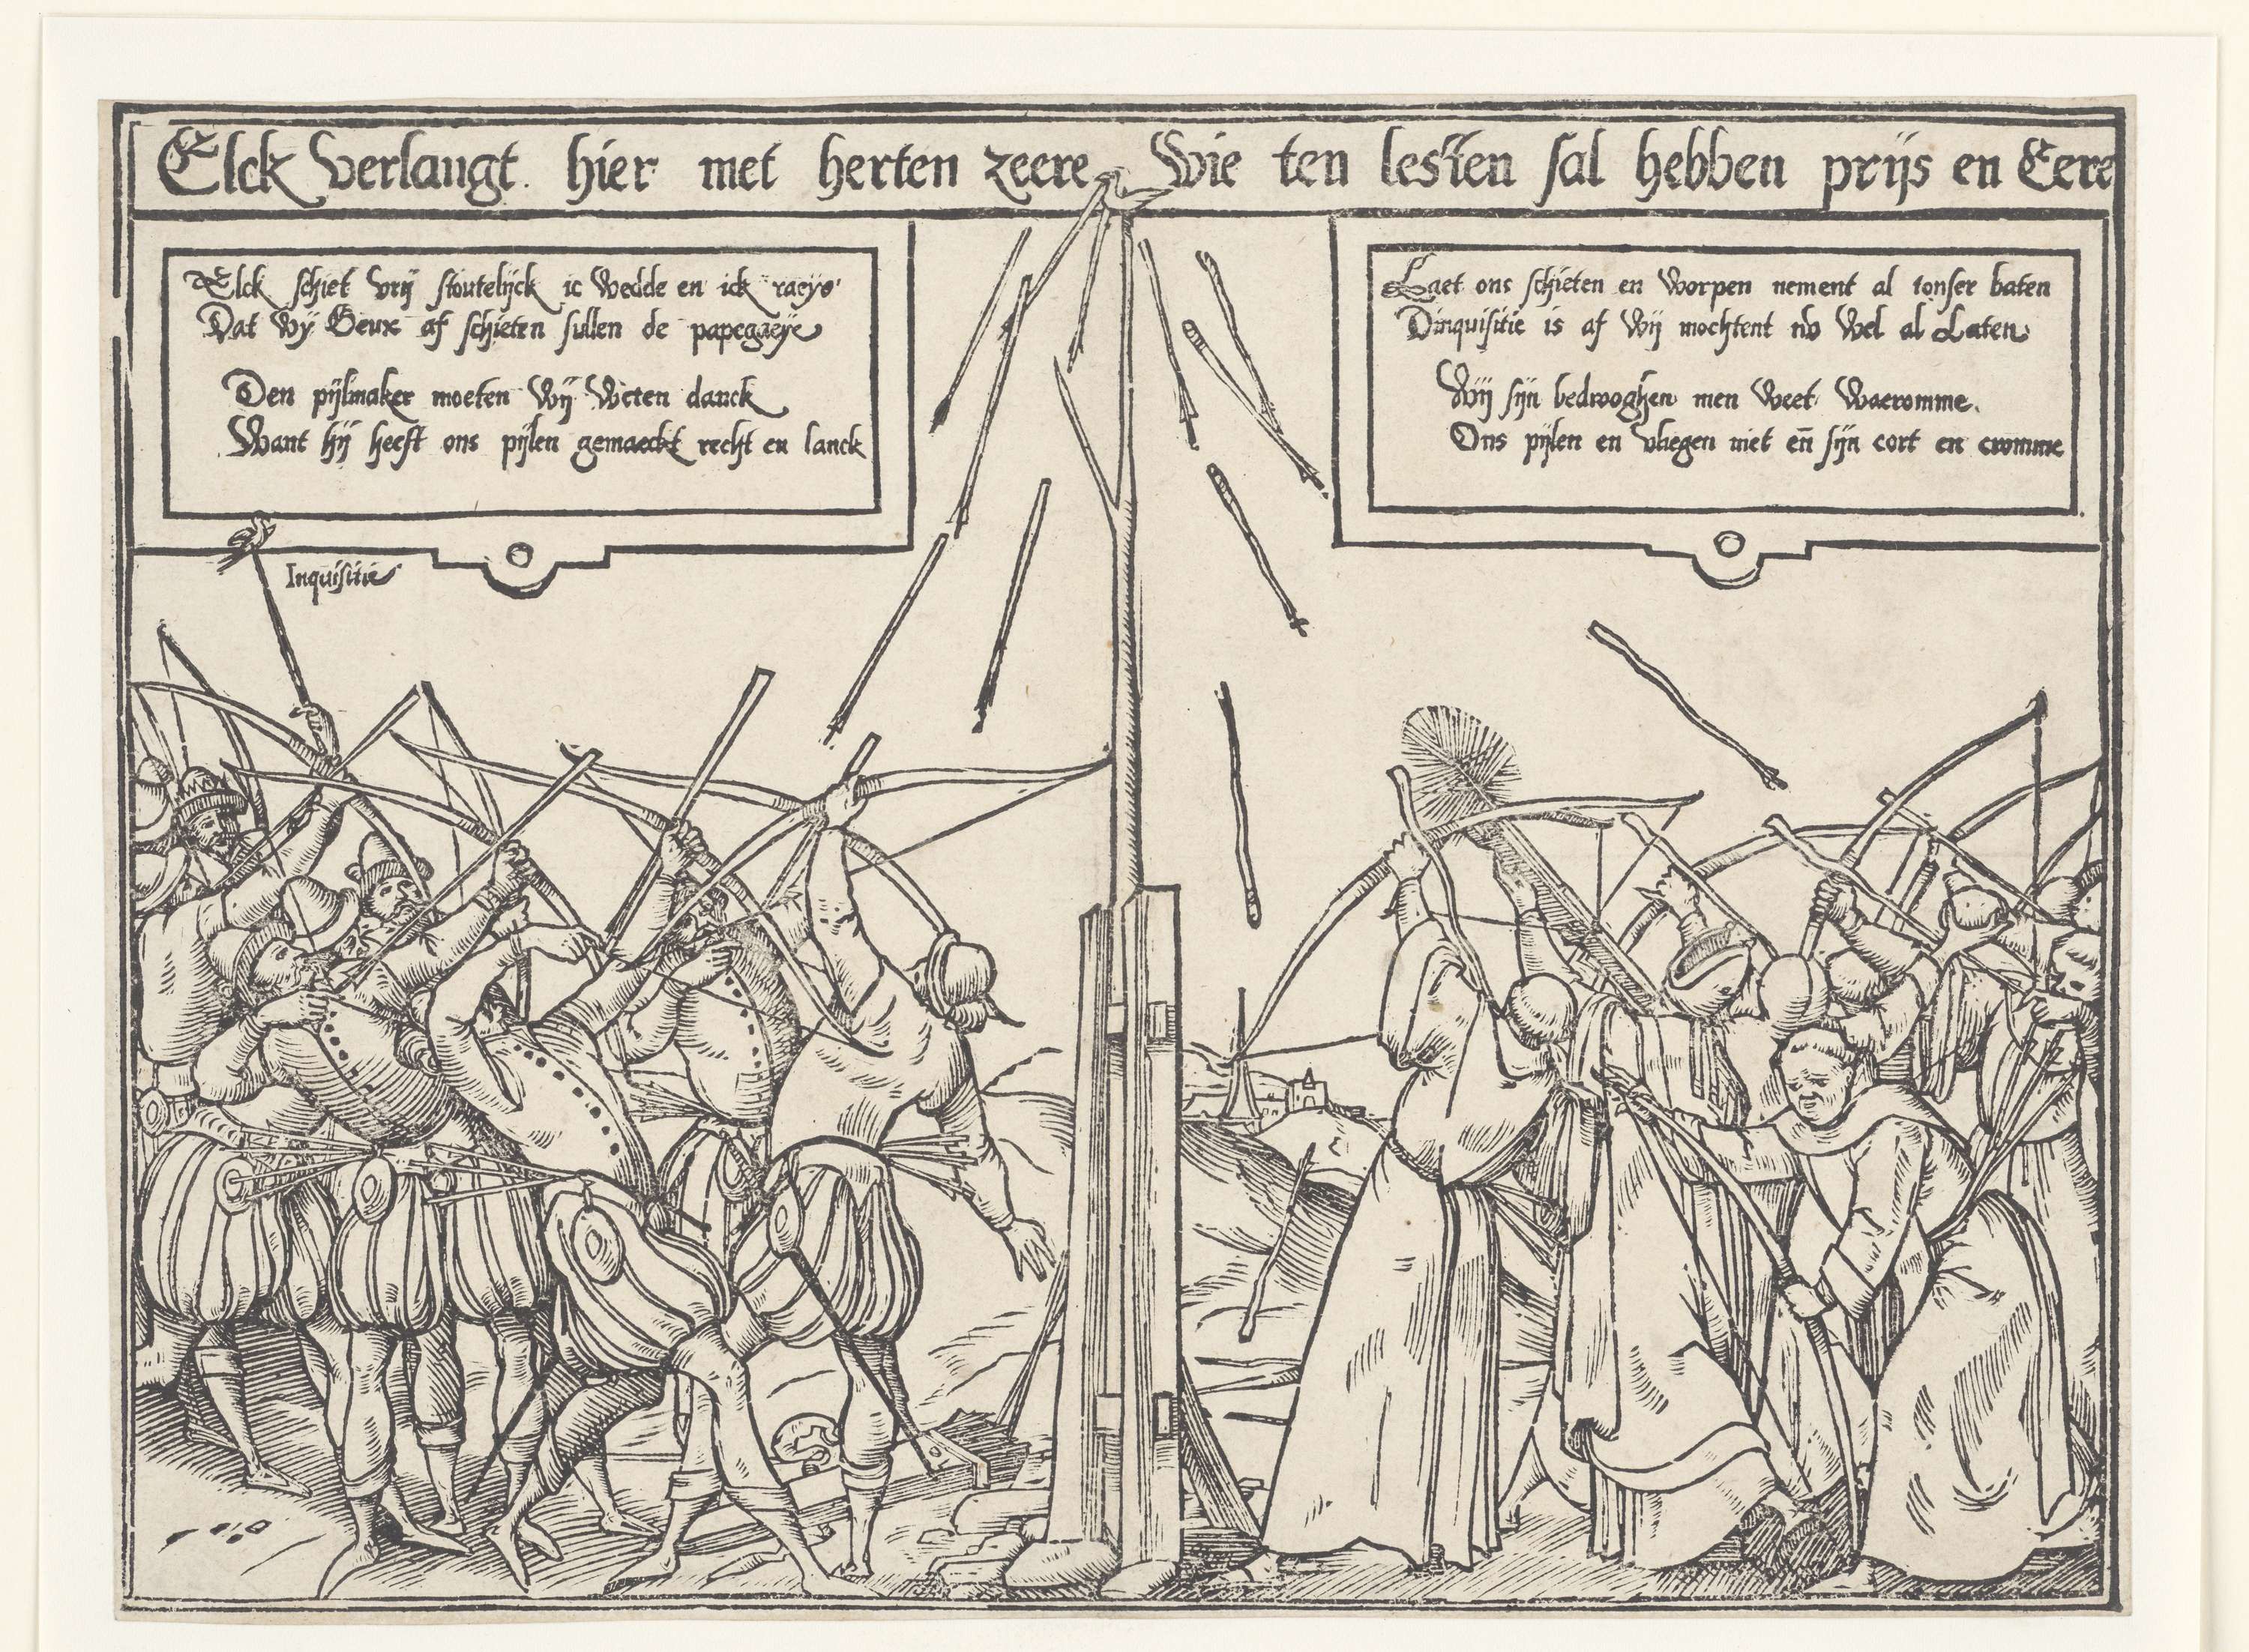 Elck verlangt hier met herten zeere Wie ten lesten sal hebben prijs en Eere
Elck schiet vrij stoutelijck ic wedde en ick raeys
Dat wij Geux af schieten sullen de papegaeye
Den pijlmaker moeten wij weten danck
Want hij heeft ons pijlen gemaeckt recht en lanck
Inquisitie
Laet ons schieten en worpen nement al tonser baten
Dinquisitie is af wij mochtent nv wel al Laten
Wij sijn bedrooghen men weet waeromme.
Ons pijlen en vliegen niet en̄ sijn cort en cromme